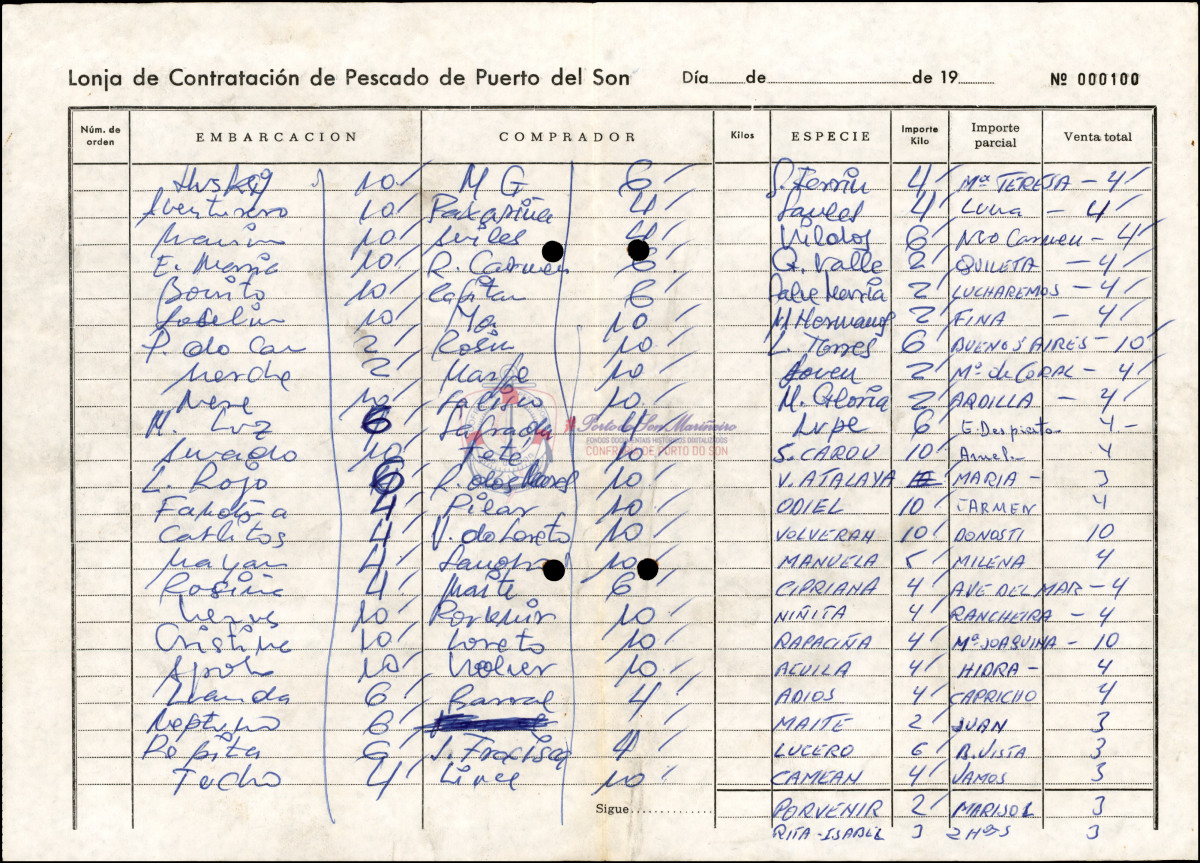 Lonja de Contratación de Pescado de Puerto del Son Día de de 19 Nº 000100
Núm. de orden EMBARCACION COMPRADOR Kilos ESPECIE Importe Kilo Importe parcial Venta total
Huskey 10 M G 6 4 Mª TERESA - 4
Aventurero 10 4 4 Luna - 4
10 Aviles 4 6 Nra Carmen - 4
E. Maria 10 R. Carmen 6 Q. Valle 2 QUILETA - 4
Bonito 10 Capitan 6 Salve Maria 2 LUCHAREMOS - 4
10 10 M Hermanos 2 FINA - 4
P. do Can 2 Rosiu 10 L. Torres 6 BUENOS AIRES - 10
Merche 2 10 Joven 2 Mª de CORAL - 4
10 10 M. Gloria 2 ARDILLA - 4
M. Luz 6 Sagrada 10 Lupe 6 4 -
10 Tete 10 S. CAROU 10 4
L. Rojo 6 10 V. ATALAYA MARIA - 3
4 Pilar 10 ODIEL 10 CARMEN 4
Carlitos 4 V. do Loreto 10 VOLVERAN 10 DONOSTI 10
4 10 MANUELA 5 MILENA 4
Rosiña 4 Maite 6 CIPRIANA 4 AVE DEL MAR - 4
Venus 10 Porvenir 10 NIÑITA 4 RANCHEIRA - 4
Cristina 10 Loreto 10 RAPACIÑA 4 Mª JOAQUINA - 10
10 10 AGUILA 4 HIDRA - 4
6 Barral 4 ADIOS 4 CAPRICHO 4
Neptuno 6 MAITE 2 JUAN 3
Pepita 6 4 LUCERO 6 B. VISTA 3
Tocho 4 Lince 10 CAMEAN 4 VAMOS 3
Sigue PORVENIR 2 MARISOL 3
RITA - ISABEL 3 2 Hºs 3
Porto do Son Mariñeiro
FONDOS DOCUMENTAIS HISTÓRICOS DIGITALIZADOS
CONFRARÍA DE PORTO DO SON